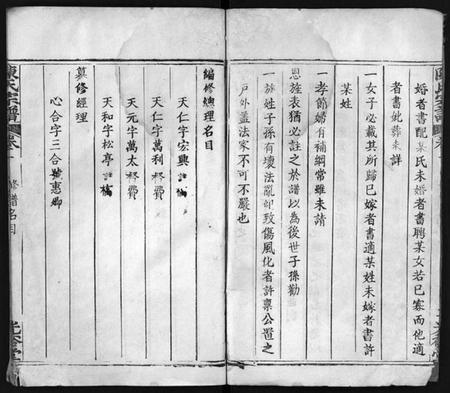 婚者書配某氏未婚者書聘某女若已寡而他適
者書妣葬未詳
一女子必載其所歸已嫁者書適某姓未嫁者書許
某姓
一孝節婦有補綱常雖未請
恩旌表猶必註之於譜以為後世子孫勸
一族姓子孫有壞法亂紀致傷風化者許稟公置之
戶外蓋法家不可不嚴也
編修總理名目
天仁字宏興
天仁字萬利
天元字萬太
天和字松亭
纂修經理
心合字三合號惠卿
陳氏宗譜 卷一 修譜名目